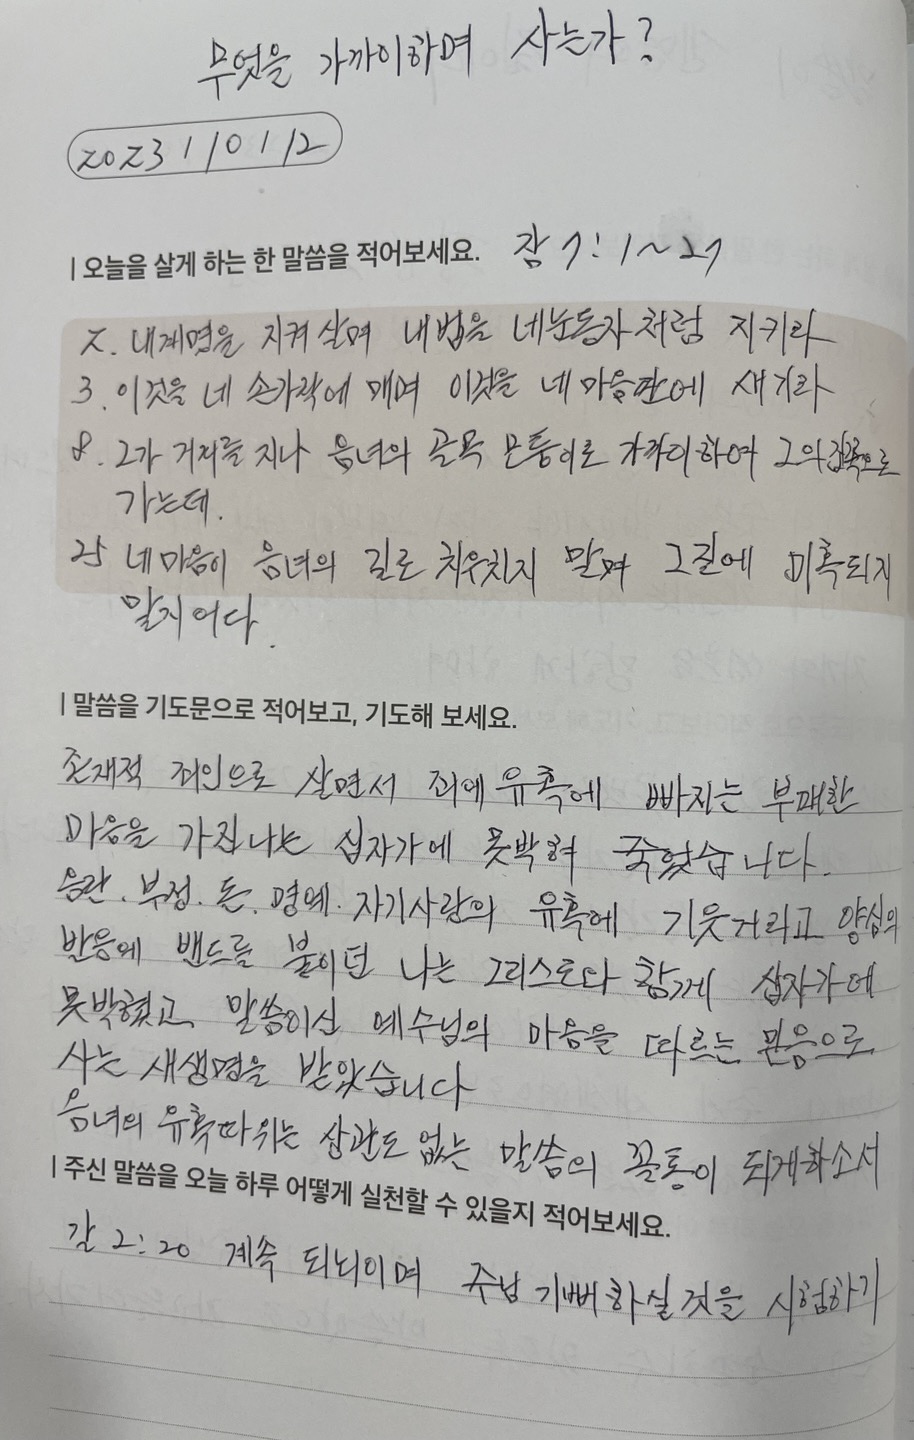 무엇을 가까이하며 사는가?
2023/10/12
오늘을 살게 하는 한 말씀을 적어보세요. 잠 7:1~27
2. 내계명을 지켜 살며 내법을 네눈동자처럼 지키라
3. 이것을 네 손가락에 매며 이것을 네 마음판에 새기라
8. 그가 거리를 지나 음녀의 골목 모퉁이로 가까이하여 그의집쪽으로
가는데.
25 네 마음이 음녀의 길로 치우치지 말며 그길에 미혹되지
말지어다.
말씀을 기도문으로 적어보고, 기도해 보세요.
존재적 죄인으로 살면서 죄에 유혹에 빠지는 부패한
마음을 가진 나는 십자가에 못박혀 죽었습니다.
음란. 부정. 돈. 명예. 자기사랑의 유혹에 기웃거리고 양심의
반응에 밴드를 붙이던 나는 그리스도와 함께 십자가에
못박혔고, 말씀이신 예수님의 마음을 따르는 믿음으로
사는 새생명을 받았습니다
음녀의 유혹따위는 상관도 없는 말씀의 꼴통이 되게하소서
주신 말씀을 오늘 하루 어떻게 실천할 수 있을지 적어보세요.
갈 2:20 계속 되뇌이며 주님 기뻐하실 것을 시험하기